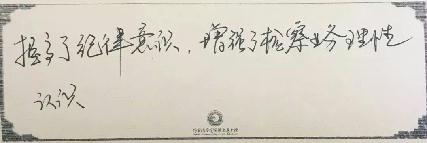 提高了纪律意识，增强了检察业务理性
认识